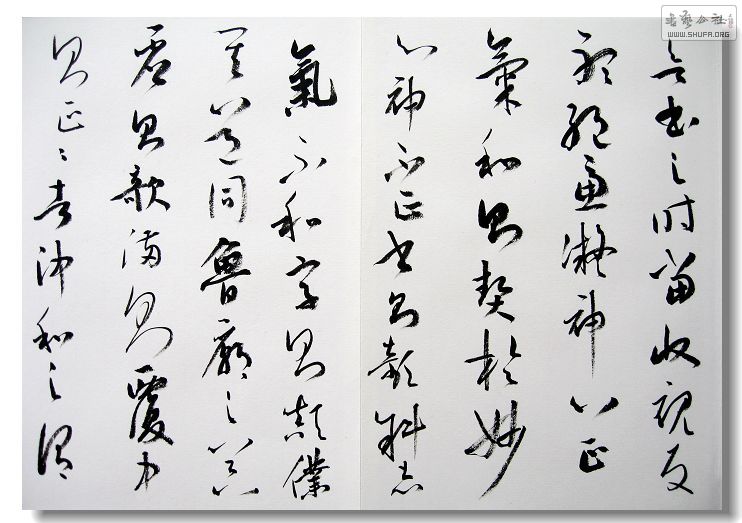 書之時當收視反
聽絕慮凝神心正
氣和則契於妙
心神不正書則欹斜志
氣不和字則顛仆
其道同魯廟之器
虛則欹滿則覆中
則正正者沖和之謂
書藝公社
WWW.SHUFA.ORG